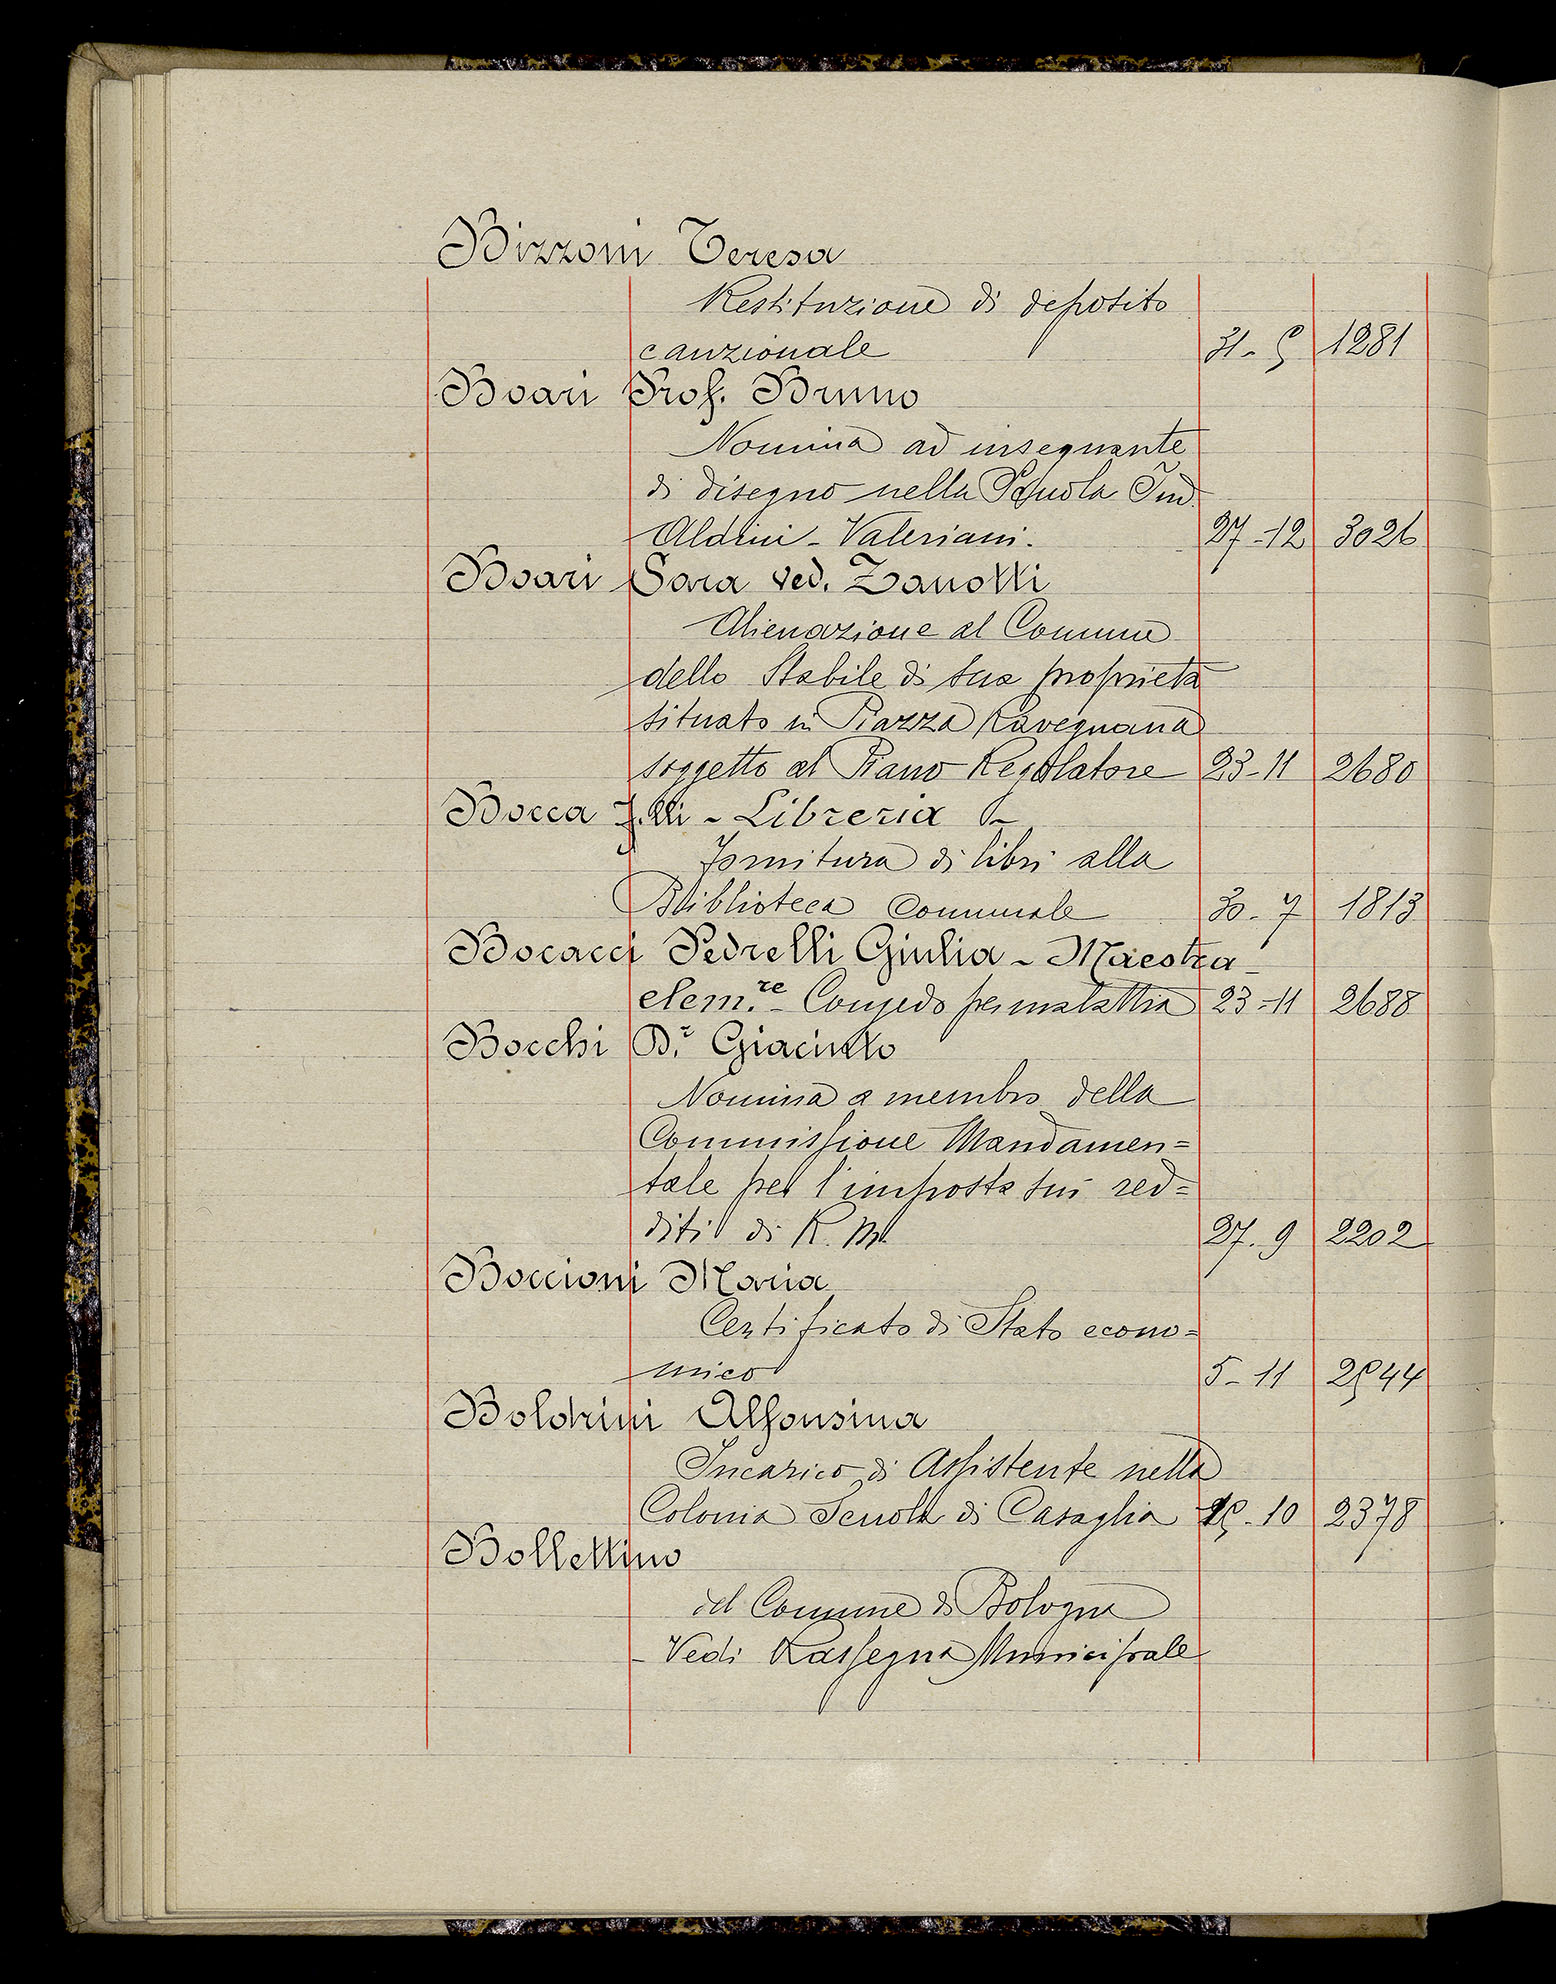 Bizzoni Teresa
Restituzione di deposito
cauzionale 31-5 1281
Boari Prof. Bruno
Nomina ad insegnante
di disegno nella Scuola Ind.
Aldini-Valeriani. 27-12 3026
Boari Sara ved. Zanotti
Alienazione al Comune
dello Stabile di sua proprietà
situato in Piazza Ravegnana
soggetto al Piano Regolatore 23-11 2680
Bocca F.lli - Libreria -
Fornitura di libri alla
Biblioteca Comunale 30-7 1813
Bocacci Pedrelli Giulia - Maestra
elem.re - Congedo per malattia 23-11 2688
Bocchi D.r Giacinto
Nomina a membro della
Commissione Mandamen=
tale per l'imposta sui red=
diti di R. M. 27.9 2202
Boccioni Maria
Certificato di Stato econo=
mico 5-11 2544
Boldrini Alfonsina
Incarico di Assistente nella
Colonia Scuola di Casaglia 15-10 2378
Bollettino
del Comune di Bologna
- Vedi Rassegna Municipale